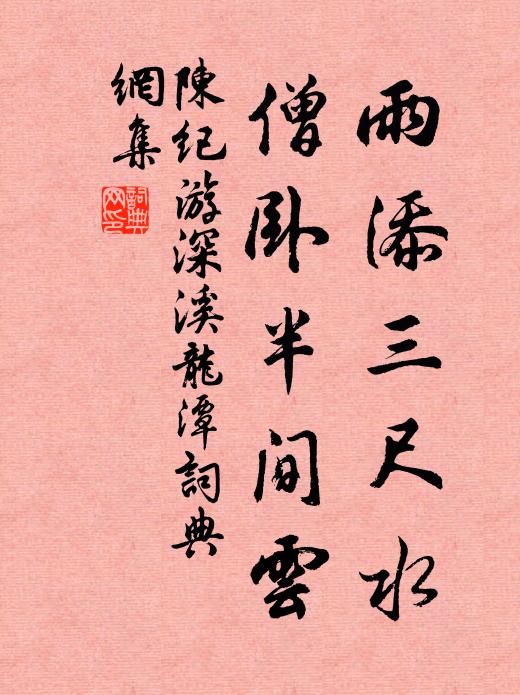 雨添三尺水
僧卧半间雲
陳纪游深溪龍潭詞典
網集
詞典網印